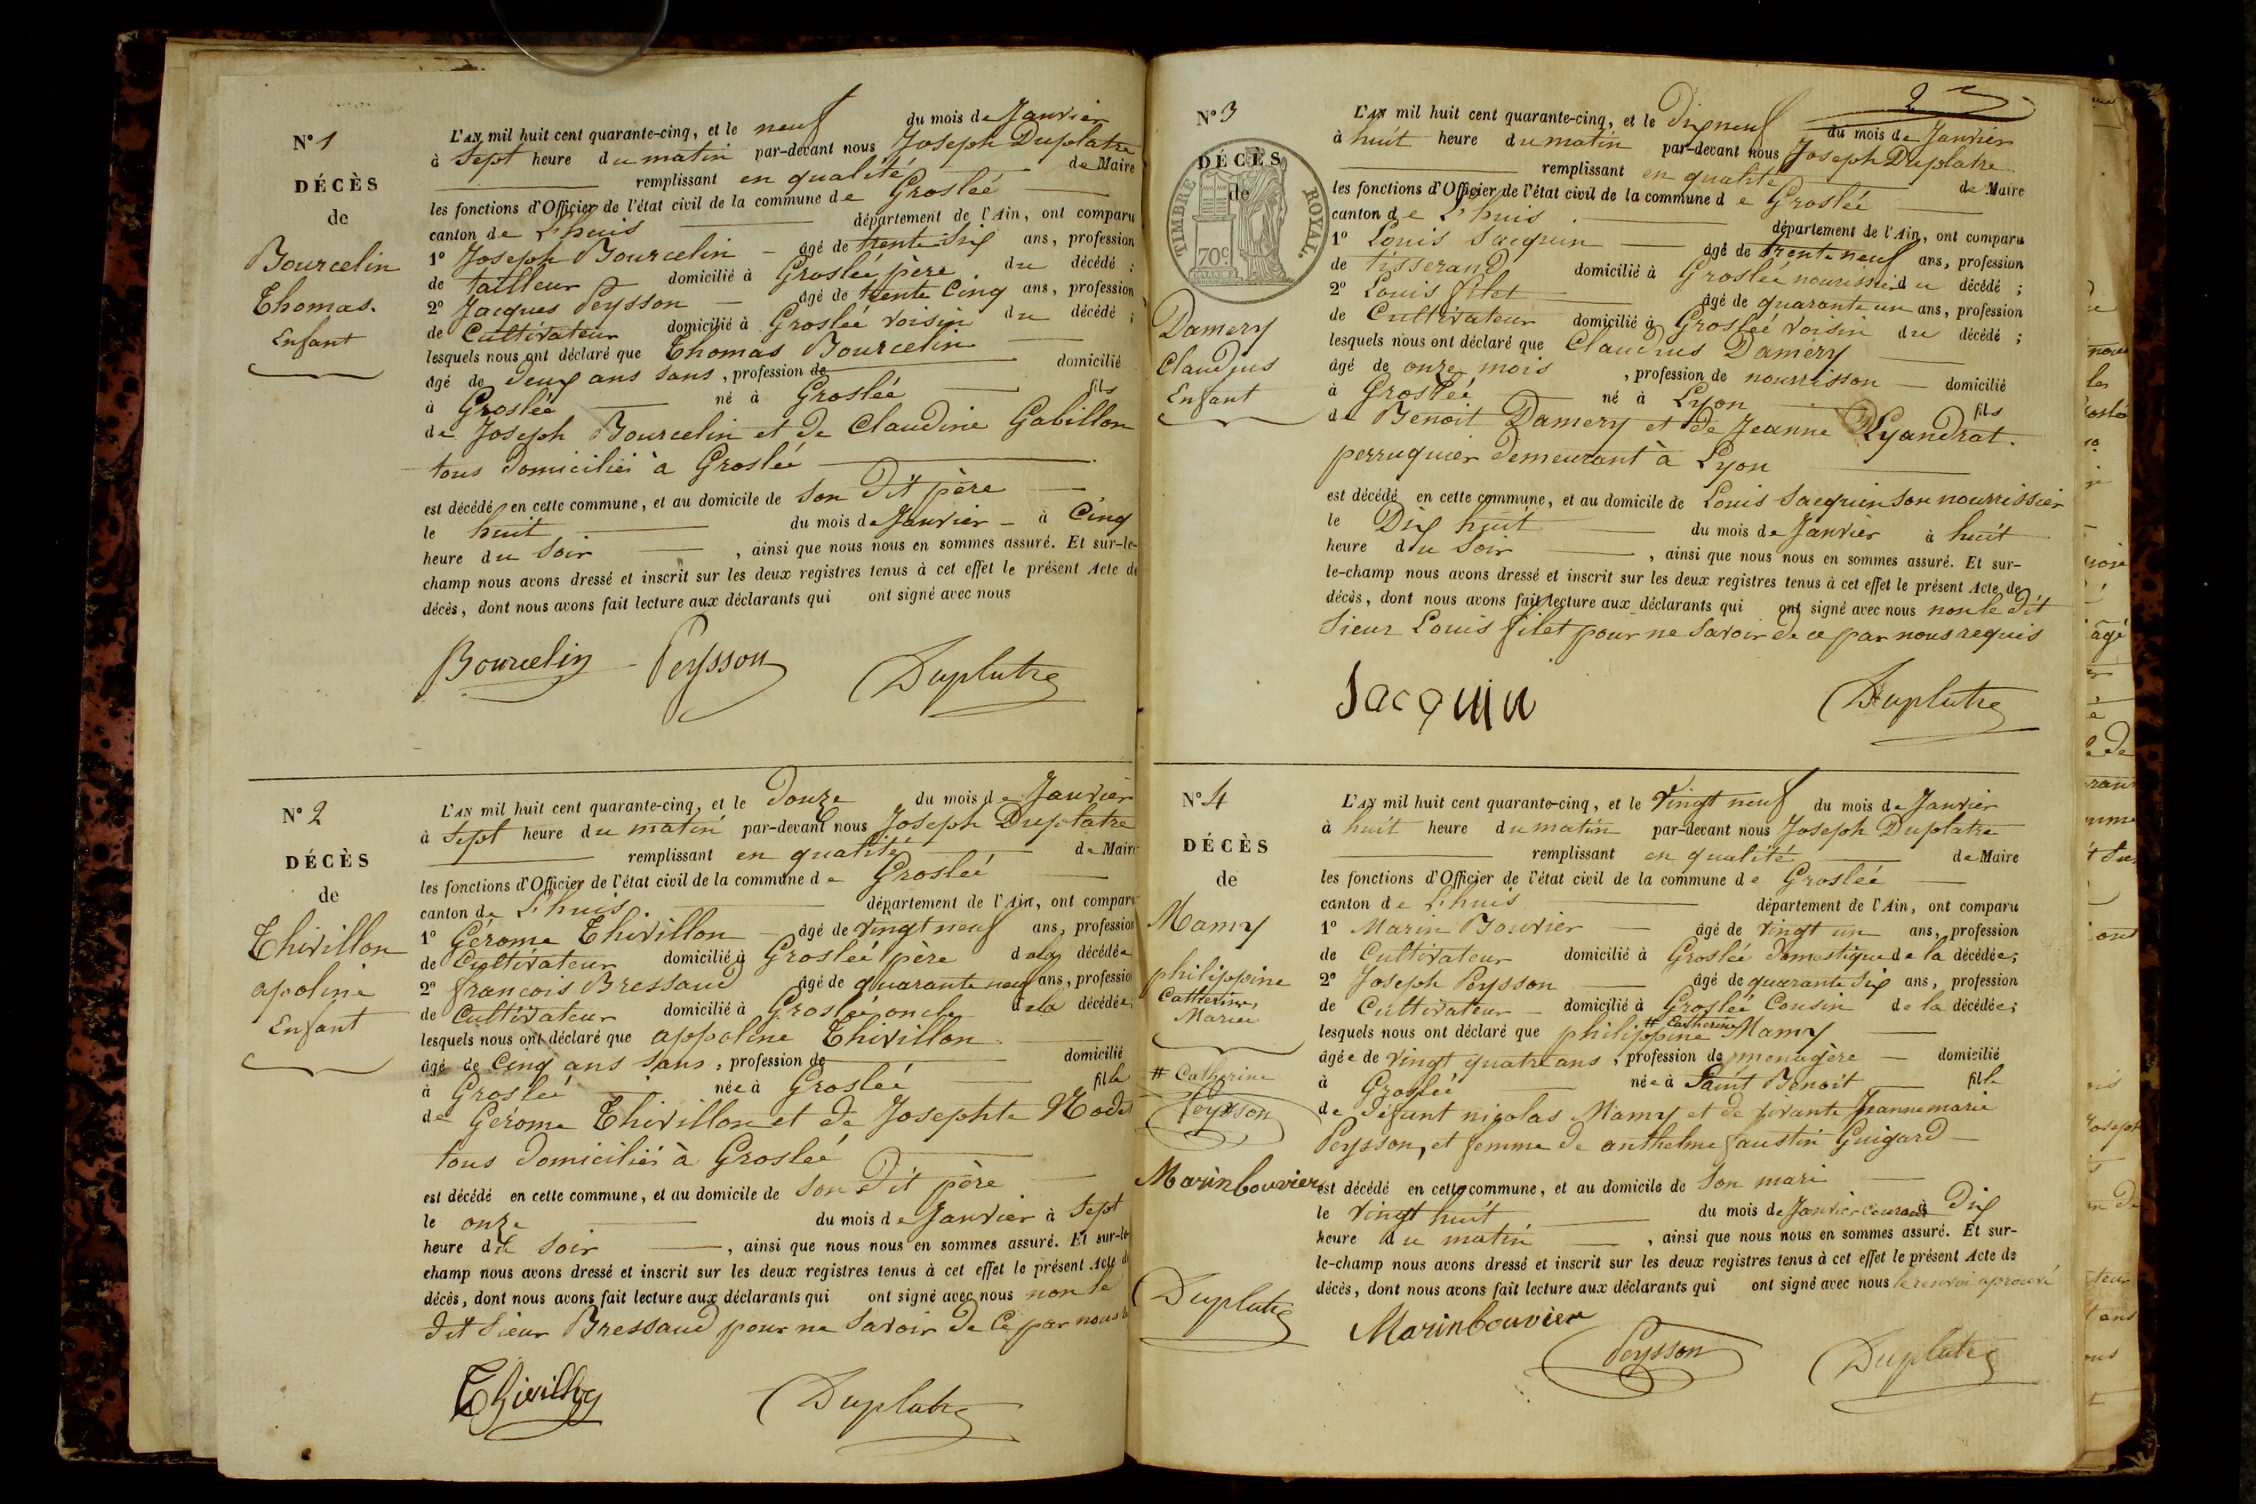 N° 1
DÉCÈS
de
Bourcelin
Thomas.
Enfant
L'AN mil huit cent quarante-cinq, et le neuf du mois de Janvier
à sept heure du matin par-devant nous Joseph Duplatre
remplissant en qualité de Maire
les fonctions d'Officier de l'état civil de la commune de Groslée
canton de L'huis département de l'Ain, ont comparu
1° Joseph Bourcelin âgé de trente six ans, profession
de tailleur domicilié à Groslée père du décédé ;
2° Jacques Peysson âgé de trente cinq ans, profession
de Cultivateur domicilié à Groslée voisin du décédé ;
lesquels nous ont déclaré que Thomas Bourcelin
âgé de deux ans sans, profession de domicilié
à Groslée né à Groslée fils
de Joseph Bourcelin et de Claudine Gabillon
tous domiciliés à Groslée
est décédé en cette commune, et au domicile de son dit père
le huit du mois de Janvier à Cinq
heure du soir , ainsi que nous nous en sommes assuré. Et sur-le-
champ nous avons dressé et inscrit sur les deux registres tenus à cet effet le présent Acte de
décès, dont nous avons fait lecture aux déclarants qui ont signé avec nous
Bourcelin Peysson Duplatre
N° 2
DÉCÈS
de
Thivillon
apoline
Enfant
L'AN mil huit cent quarante-cinq, et le Douze du mois de Janvier
à sept heure du matin par-devant nous Joseph Duplatre
remplissant en qualité de Maire
les fonctions d'Officier de l'état civil de la commune de Groslée
canton de L'huis. département de l'Ain, ont comparu
1° Gérome Thivillon âgé de vingt neuf ans, profession
de Cultivateur domicilié à Groslée père de la décédée
2° francois Bressaud âgé de quarante neuf ans, profession
de Cultivateur domicilié à Groslée oncle de la décédée ;
lesquels nous ont déclaré que appoline Thivillon
âgé de Cinq ans sans, profession de domicilié
à Groslée née à Groslée fille
de Gérome Thivillon et de Josephte
tous domiciliés à Groslée
est décédé en cette commune, et au domicile de son dit père
le onze du mois de Janvier à sept
heure du soir , ainsi que nous nous en sommes assuré. Et sur-le-
champ nous avons dressé et inscrit sur les deux registres tenus à cet effet le présent Acte de
décès, dont nous avons fait lecture aux déclarants qui ont signé avec nous non le
dit sieur Bressaud pour ne savoir de Ce par nous
Thivillon Duplatre
2
N° 3
DÉCÈS
de
TIMBRE ROYAL.
70c
Damery
Claudius
Enfant
L'AN mil huit cent quarante-cinq, et le Dix neuf du mois de Janvier
à huit heure du matin par-devant nous Joseph Duplatre
remplissant en qualité de Maire
les fonctions d'Officier de l'état civil de la commune de Groslée
canton de L'huis département de l'Ain, ont comparu
1° Louis Jacquin âgé de trente neuf ans, profession
de tisserand domicilié à Groslée nourissier du décédé ;
2° Louis filet âgé de quarante un ans, profession
de Cultivateur domicilié à Groslée voisin du décédé ;
lesquels nous ont déclaré que Claudius Damery
âgé de onze mois , profession de nourrisson domicilié
à Groslée né à Lyon fils
de Benoit Damery et de Jeanne Lyandrat.
perruquier demeurant à Lyon
est décédé en cette commune, et au domicile de Louis Jacquin son nourrissier
le Dix huit du mois de Janvier à huit
heure du soir , ainsi que nous nous en sommes assuré. Et sur-
le-champ nous avons dressé et inscrit sur les deux registres tenus à cet effet le présent Acte de
décès, dont nous avons fait lecture aux déclarants qui ont signé avec nous non le dit
sieur Louis filet pour ne savoir de ce par nous requis
Jacquin Duplatre
N° 4
DÉCÈS
de
Mamy
philippine
Catherine,
Mariée
# Catherine
Peysson
Marinbouvier
Duplatre
L'AN mil huit cent quarante-cinq, et le vingt neuf du mois de Janvier
à huit heure du matin par-devant nous Joseph Duplatre
remplissant en qualité de Maire
les fonctions d'Officier de l'état civil de la commune de Groslée
canton de L'huis département de l'Ain, ont comparu
1° Marin Bouvier âgé de vingt un ans, profession
de Cultivateur domicilié à Groslée domestique de la décédée ;
2° Joseph Peysson âgé de quarante six ans, profession
de Cultivateur domicilié à Groslée Cousin de la décédée ;
lesquels nous ont déclaré que philippine # Catherine Mamy
âgée de vingt quatre ans, profession de menagère domicilié
à Groslée née à Saint Benoit fille
de défunt nicolas Mamy et de vivante Jeanne marie
Peysson, et femme de anthelme faustin Guigard
est décédé en cette commune, et au domicile de son mari
le vingt huit du mois de Janvier courant à Dix
heure du matin , ainsi que nous nous en sommes assuré. Et sur-
le-champ nous avons dressé et inscrit sur les deux registres tenus à cet effet le présent Acte de
décès, dont nous avons fait lecture aux déclarants qui ont signé avec nous le renvoi aprouvé
Marinbouvier Peysson Duplatre